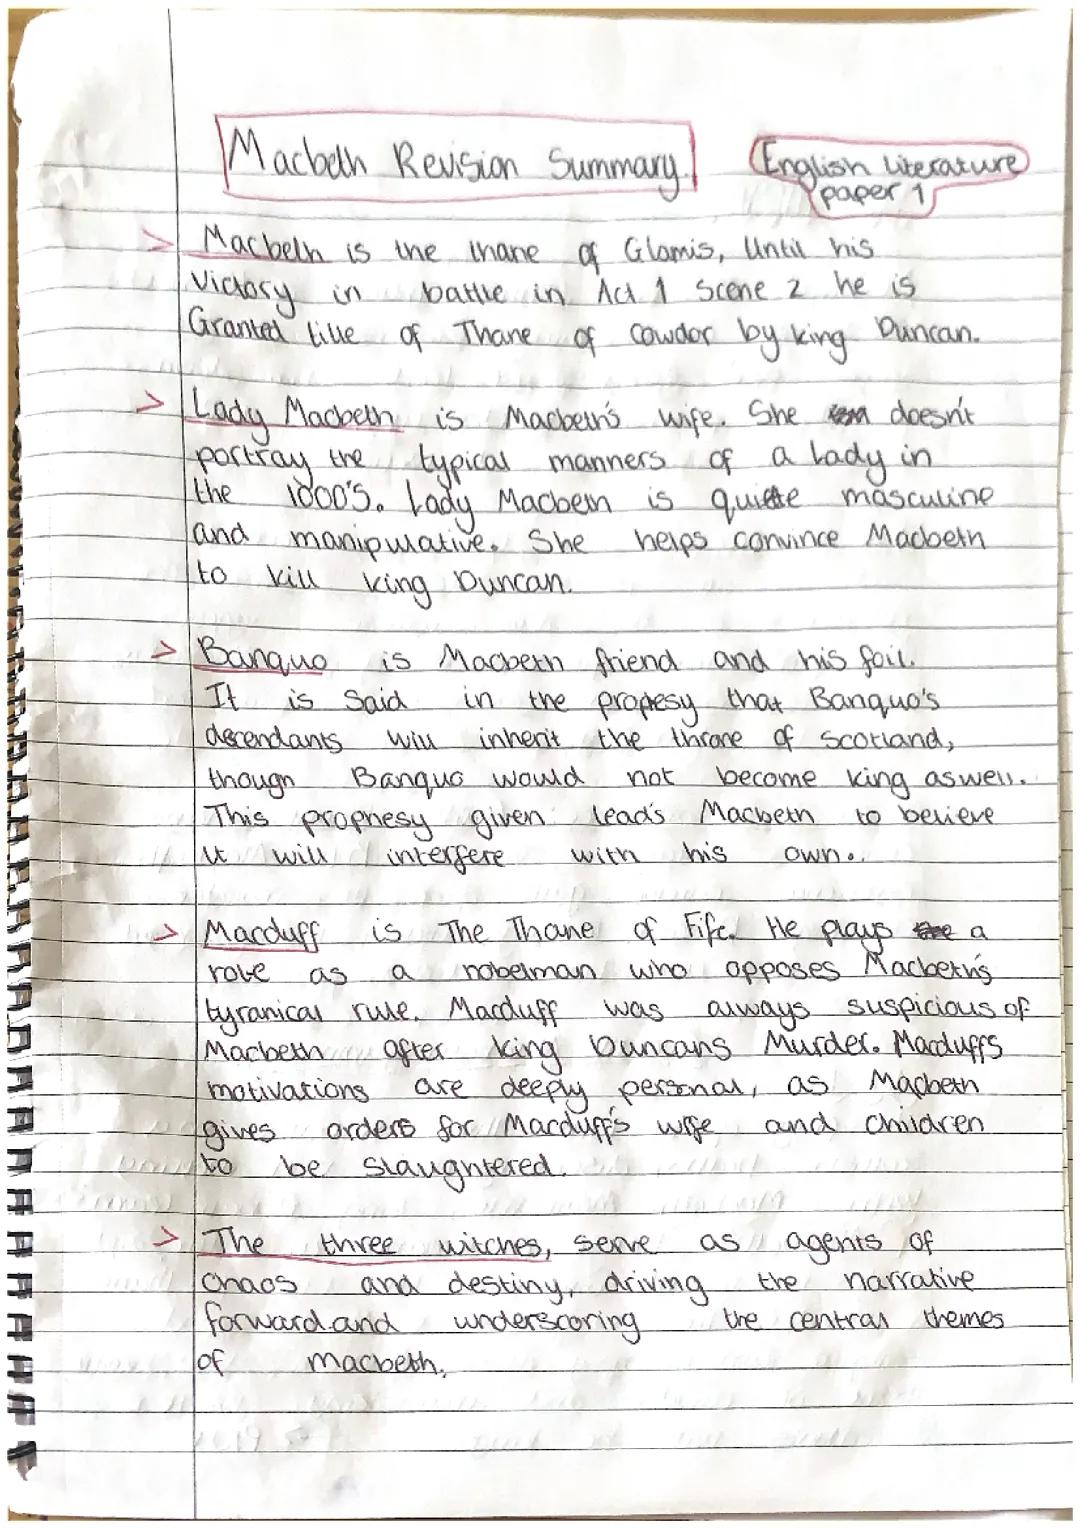 Macbeth Revision Summary.
English literature
paper 1
> Macbeth is the thane of Glamis, Until his
Victory in battle in Act 1 Scene 2 he is
Granted title of Thane of Cowdor by king Duncan.
> Lady Macbeth is Macbeth's wife. She doesn't
portray the typical manners of a Lady in
the 1000's. Lady Macbeth is quiette masculine
and manipulative. She helps convince Macbeth
to kill king Duncan.
> Banquo is Macbeth friend and his foil.
It is Said in the propesy that Banquo's
descendants will inherit the throne of Scotland,
though Banquo would not become king aswell.
This prophesy given leads Macbeth to believe
it will interfere with his own.
> Macduff is The Thane of Fife. He plays the a
role as a nobelman who opposes Macbeth's
tyranical rule. Macduff was always suspicious of
Macbeth after king Duncans Murder. Macduffs
motivations are deeply personal, as Macbeth
gives orders for Macduff's wife and Children
to be slaughtered.
> The three witches, serve as agents of
Chaos and destiny, driving the narrative
forward and underscoring the central themes
of macbeth.